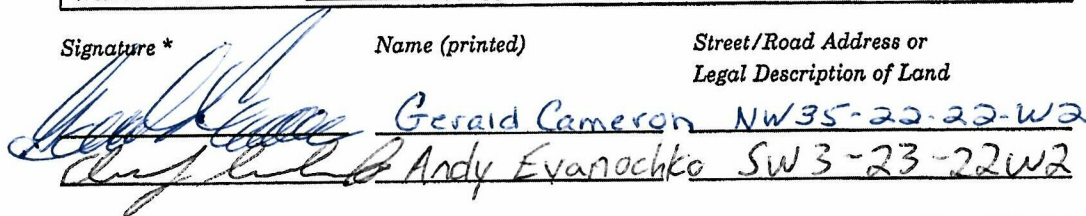 Signature * Name (printed) Street/Road Address or
Legal Description of Land
Gerald Cameron NW35-22-22-W2
Andy Evanochko SW3-23-22W2